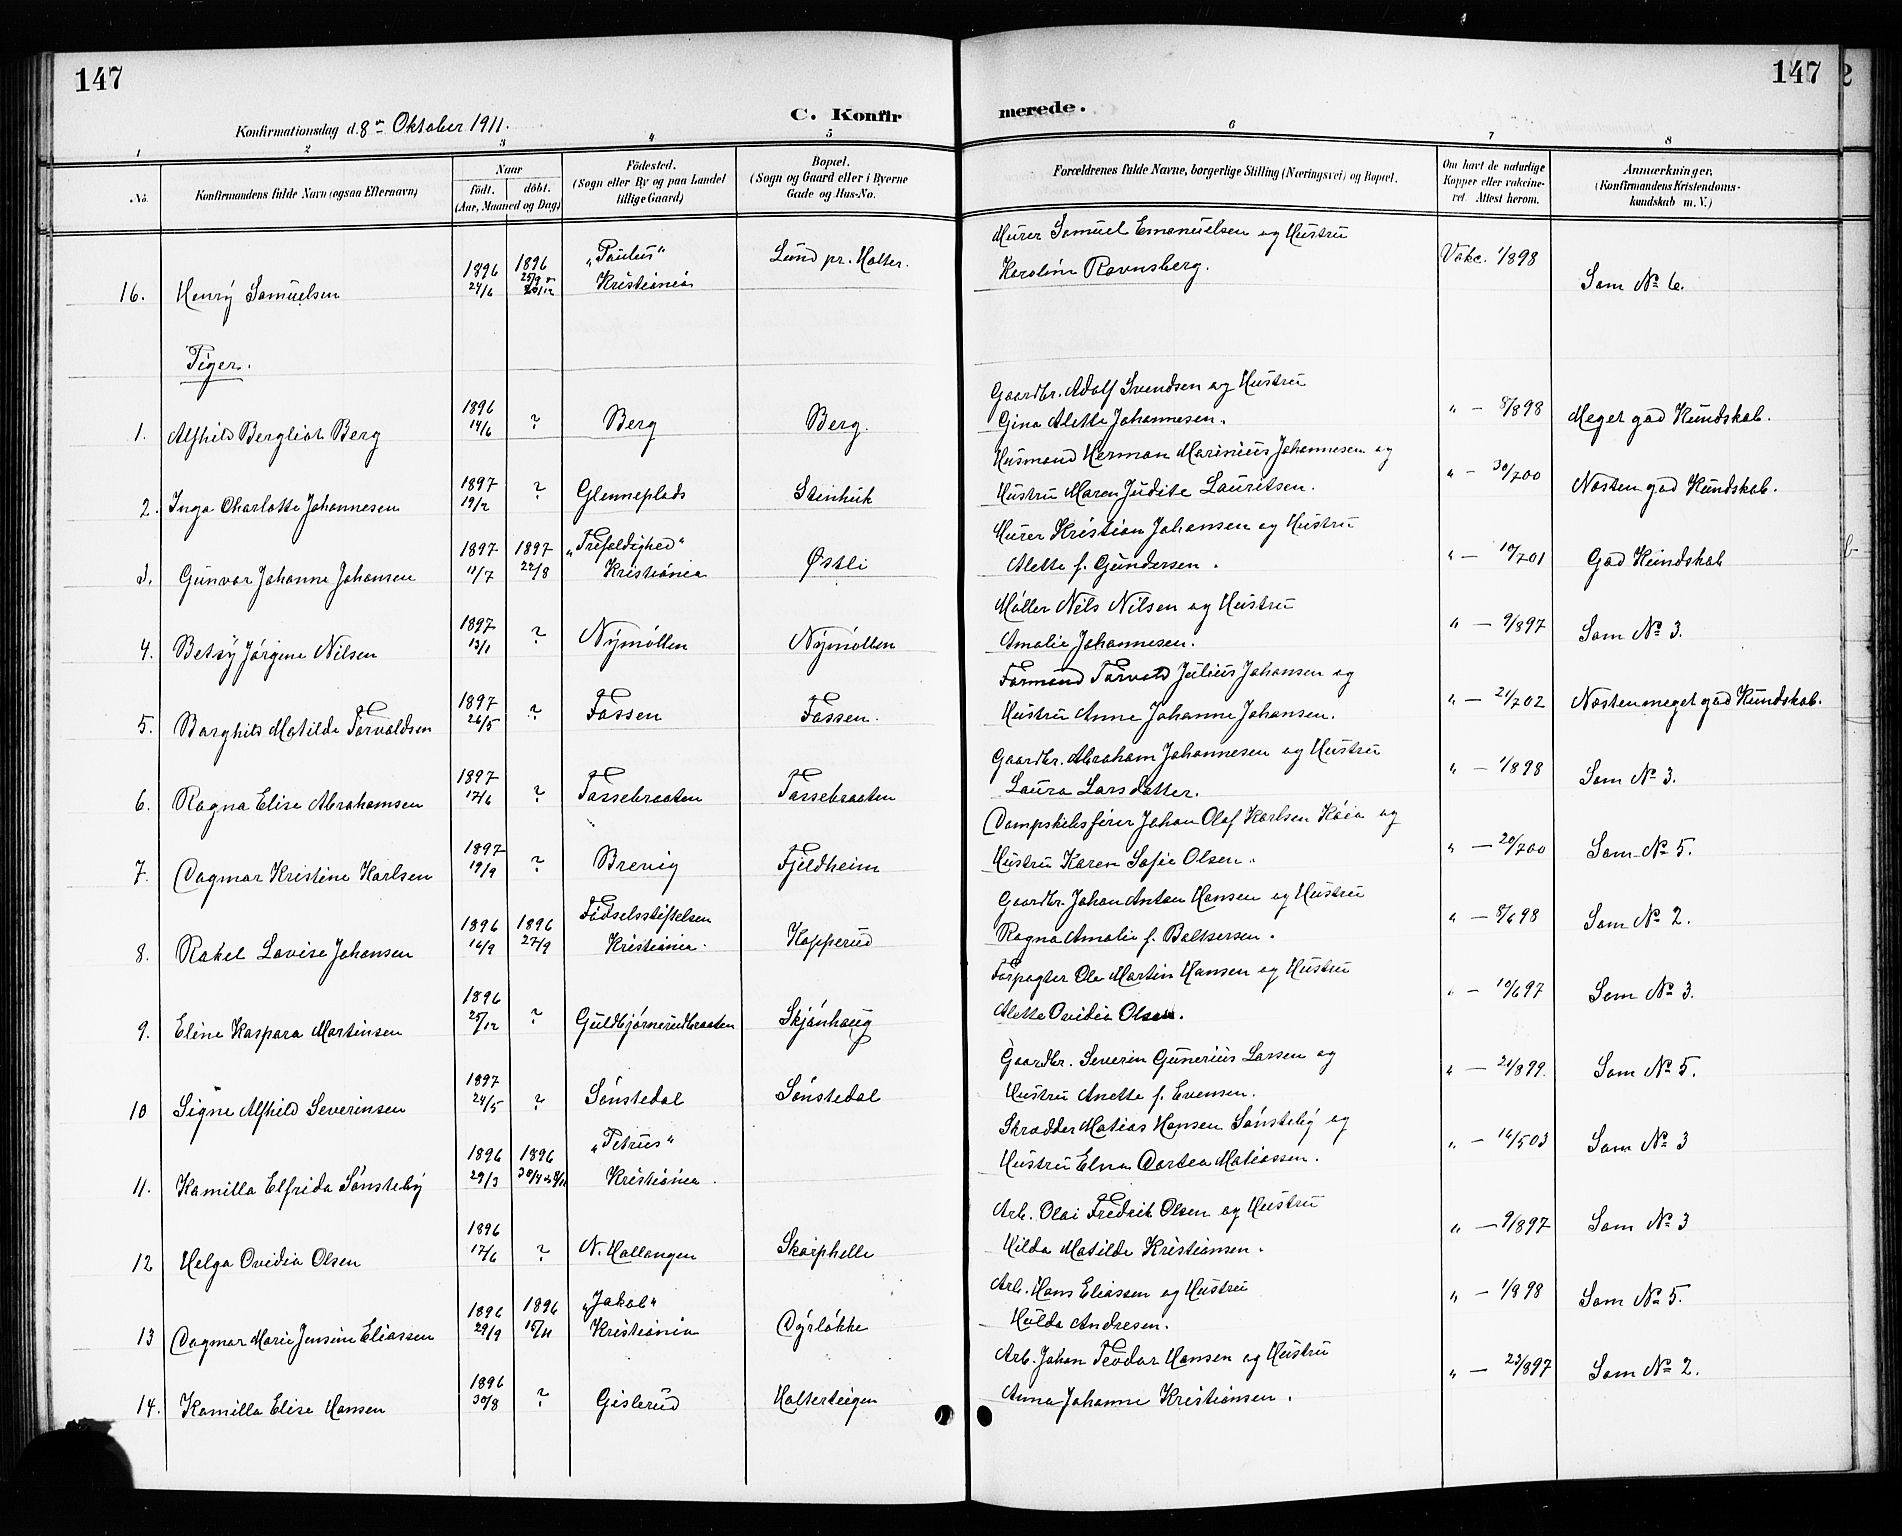 147
147
C. Konfir
merede.
Konfirmationsdag d. 8de Oktober 1911.
1 2 3 4 5 6 7 8
No. Konfirmandens fulde Navn (ogsaa Efternavn) Naar født. døbt. (Aar, Maaned og Dag) Fødested. (Sogn eller By og paa Landet tillige Gaard) Bopæl. (Sogn og Gaard eller i Byerne Gade og Hus-No. Forældrenes fulde Navne, borgerlige Stilling (Næringsvei) og Bopæl. Om havt de naturlige Kopper eller vaccineret. Attest herom. Anmærkninger, (Konfirmandens Kristendomskundskab m. V.)
„Paulus“ Lund pr. Holter. Murer Samuel Emanuelsen og Hustru
16. Henry Samuelsen 1896 24/6 1896 Kristiania Karoline Ravnsberg. Vakc. 1/8 98 Som No 6.
Piger.
Gaardbr. Adolf Svendsen og Hustru
1. Alfhild Bergliot Berg 1896 14/6 ? Berg Berg. Gina Alette Johannesen. " — 8/8 98 Meget god Kundskab.
Husmand Herman Marinius Johannesen og
2. Inga Charlotte Johannesen 1897 19/2 ? Glenneplads Stenhuk Hustru Maren Judite Lauritsen. " — 30/7 00 Næsten god Kundskab.
„Trefoldighed“ Murer Kristian Johansen og Hustru
3. Gunvor Johanne Johansen 1897 11/7 1897 22/8 Kristiania Østli Alette f. Gundersen. " — 19/7 01 God Kundskab
Møller Nils Nilsen og Hustru
4. Betsy Jørgine Nilsen 1897 13/1 ? Nymøllen Nymøllen Amalie Johannesen. " — 9/8 97 Som No 3.
Formand Torvald Julius Johansen og
5. Borghild Matilde Torvaldsen 1897 26/5 ? Fossen Fossen. Hustru Anne Johanne Johansen. " — 21/7 02 Næsten meget god Kundskab.
Gaardbr. Abraham Johannesen og Hustru
6. Ragna Elise Abrahamsen 1897 17/6 ? Tossebraaten Tossebraaten Laura Larsdatter. " — 1/8 98 Som No 3.
Dampskibsfører Johan Olaf Karlsen Kaia og
7. Dagmar Kristine Karlsen 1897 19/9 ? Brevig Fjeldheim Hustru Karen Sofie Olsen. " — 20/7 00 Som No 5.
Fødselsstiftelsen Gaardbr. Johan Anton Hansen og Hustru
8. Rakel Lovise Johansen 1896 16/9 1896 27/9 Kristiania. Kopperud Ragna Amalie f. Baltsersen. " — 8/6 98 Som No 2.
Forpagter Ole Martin Hansen og Hustru
9. Eline Kaspara Martinsen 1896 25/12 ? Guldbjørnerudbraaten Skjønhaug Alette Ovidia Olsen. " — 10/6 97 Som No 3.
Gaardbr. Severin Gunerius Larsen og
10 Signe Alfhild Severinsen 1897 24/5 ? Sønstedal Sønstedal Hustru Anette f. Evensen. " — 21/8 99. Som No 5.
„Petrus“ Skrædder Matias Hansen Sønsteby og
11. Kamilla Elfrida Sønsteby 1896 29/3 1896 Kristiania. Hustru Elna Dortea Matiassen. " — 16/5 03 Som No 3
Arb. Olai Fredrik Olsen og Hustru
12 Helga Ovidia Olsen 1896 17/6 ? N. Hallangen Skorphelle Hilda Matilde Kristiansen. " — 9/8 97 Som No 3
„Jakob“ Arb. Hans Eliassen og Hustru
13 Dagmar Marie Jensine Eliassen 1896 29/9 1896 15/11 Kristiania Dyrløkke Hulda Andresen. " — 1/8 98 Som No 5.
Arb. Johan Teodor Hansen og Hustru
14. Kamilla Elise Hansen 1896 30/8 ? Gislerud Holterteigen Anna Johanne Kristiansen. " — 23/8 97 Som No 2.